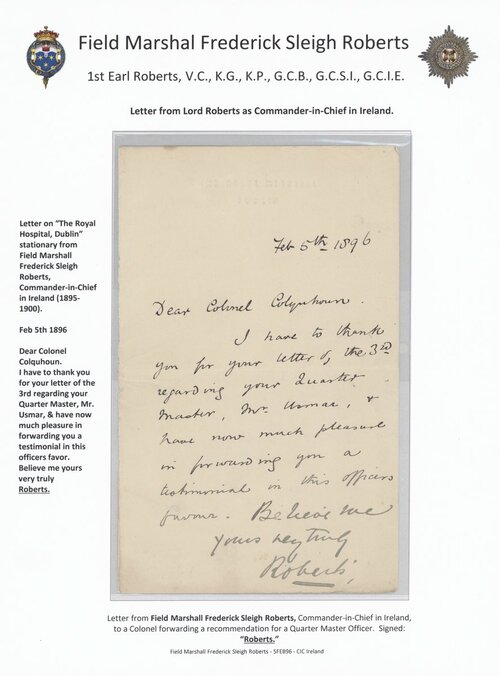 Field Marshal Frederick Sleigh Roberts
1st Earl Roberts, V.C., K.G., K.P., G.C.B., G.C.S.I., G.C.I.E.
Letter from Lord Roberts as Commander-in-Chief in Ireland.
Letter on "The Royal
Hospital, Dublin"
stationary from
Field Marshall
Frederick Sleigh
Roberts,
Commander-in-Chief
in Ireland (1895-
1900).
Feb 5th 1896
Dear Colonel
Colquhoun.
I have to thank you
for your letter of the
3rd regarding your
Quarter Master, Mr.
Usmar, & have now
much pleasure in
forwarding you a
testimonial in this
officers favor.
Believe me yours
very truly
Roberts.
Feb 5th 1896
Dear Colonel Colquhoun.
I have to thank
you for your letter of the 3rd
regarding your Quarter
Master, Mr. Usmar, &
have now much pleasure
in forwarding you a
testimonial in this officers
favour. Believe me
yours very truly
Roberts.
Letter from Field Marshall Frederick Sleigh Roberts, Commander-in-Chief in Ireland,
to a Colonel forwarding a recommendation for a Quarter Master Officer. Signed:
"Roberts."
Field Marshall Frederick Sleigh Roberts - 5FEB96 - CIC Ireland